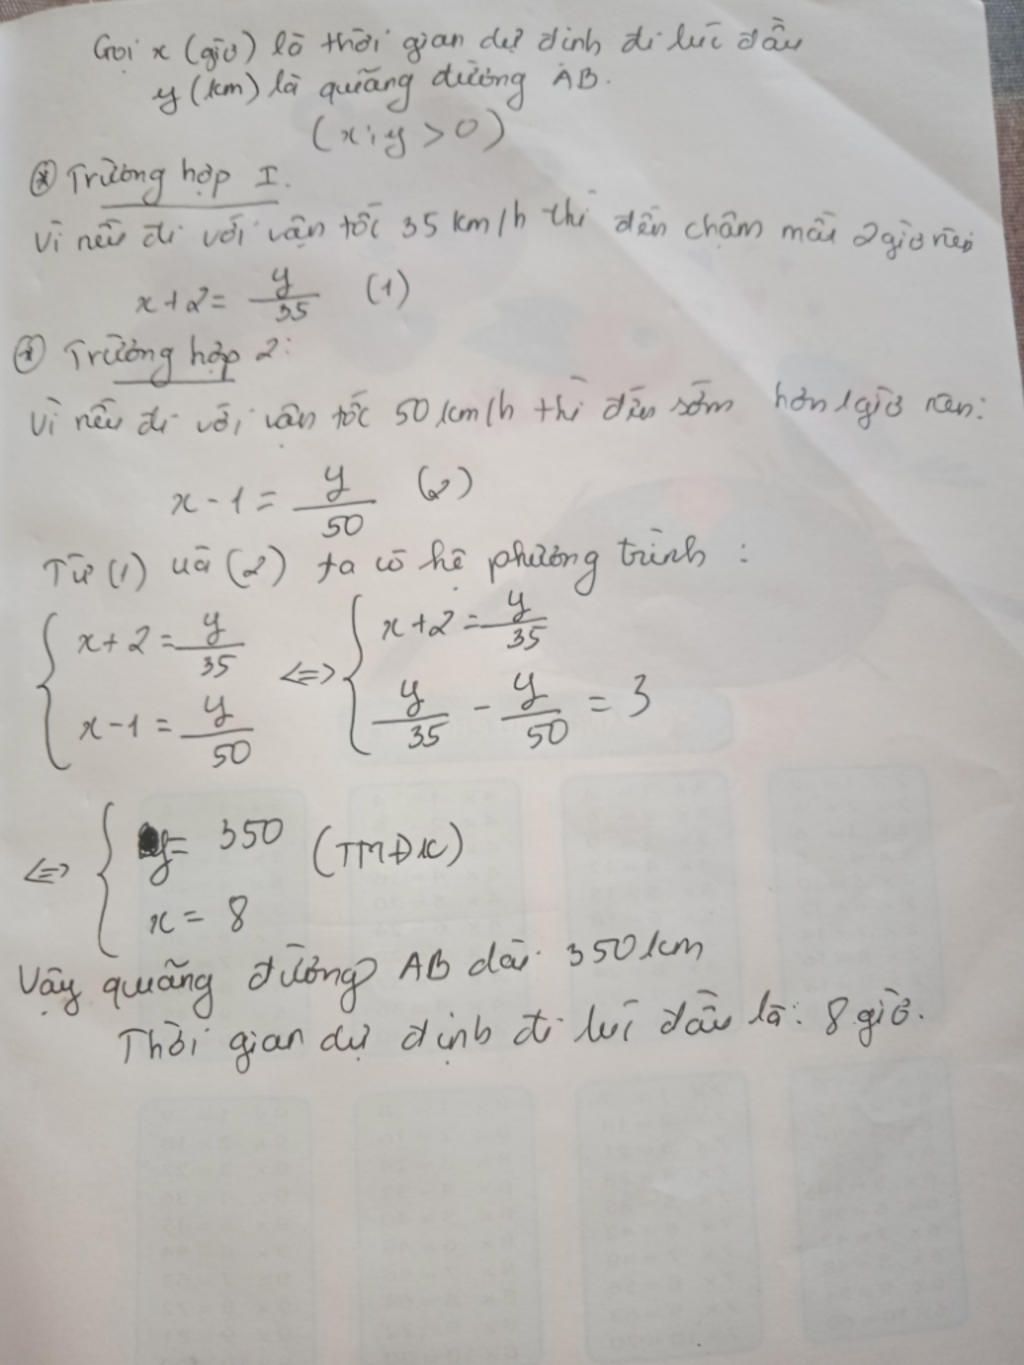 Gọi x (giờ) là thời gian dự định đi lúc đầu
y (km) là quãng đường AB.
(x; y > 0)
* Trường hợp I.
Vì nếu đi với vận tốc 35 km/h thì đến chậm mất 2 giờ nên
x + 2 = y/35 (1)
* Trường hợp 2:
Vì nếu đi với vận tốc 50 km/h thì đến sớm hơn 1 giờ nên:
x - 1 = y/50 (2)
Từ (1) và (2) ta có hệ phương trình :
{ x + 2 = y/35 <=> { x + 2 = y/35
x - 1 = y/50 y/35 - y/50 = 3
<=> { y = 350 (TMĐK)
x = 8
Vậy quãng đường AB dài 350 km
Thời gian dự định đi lúc đầu là: 8 giờ.